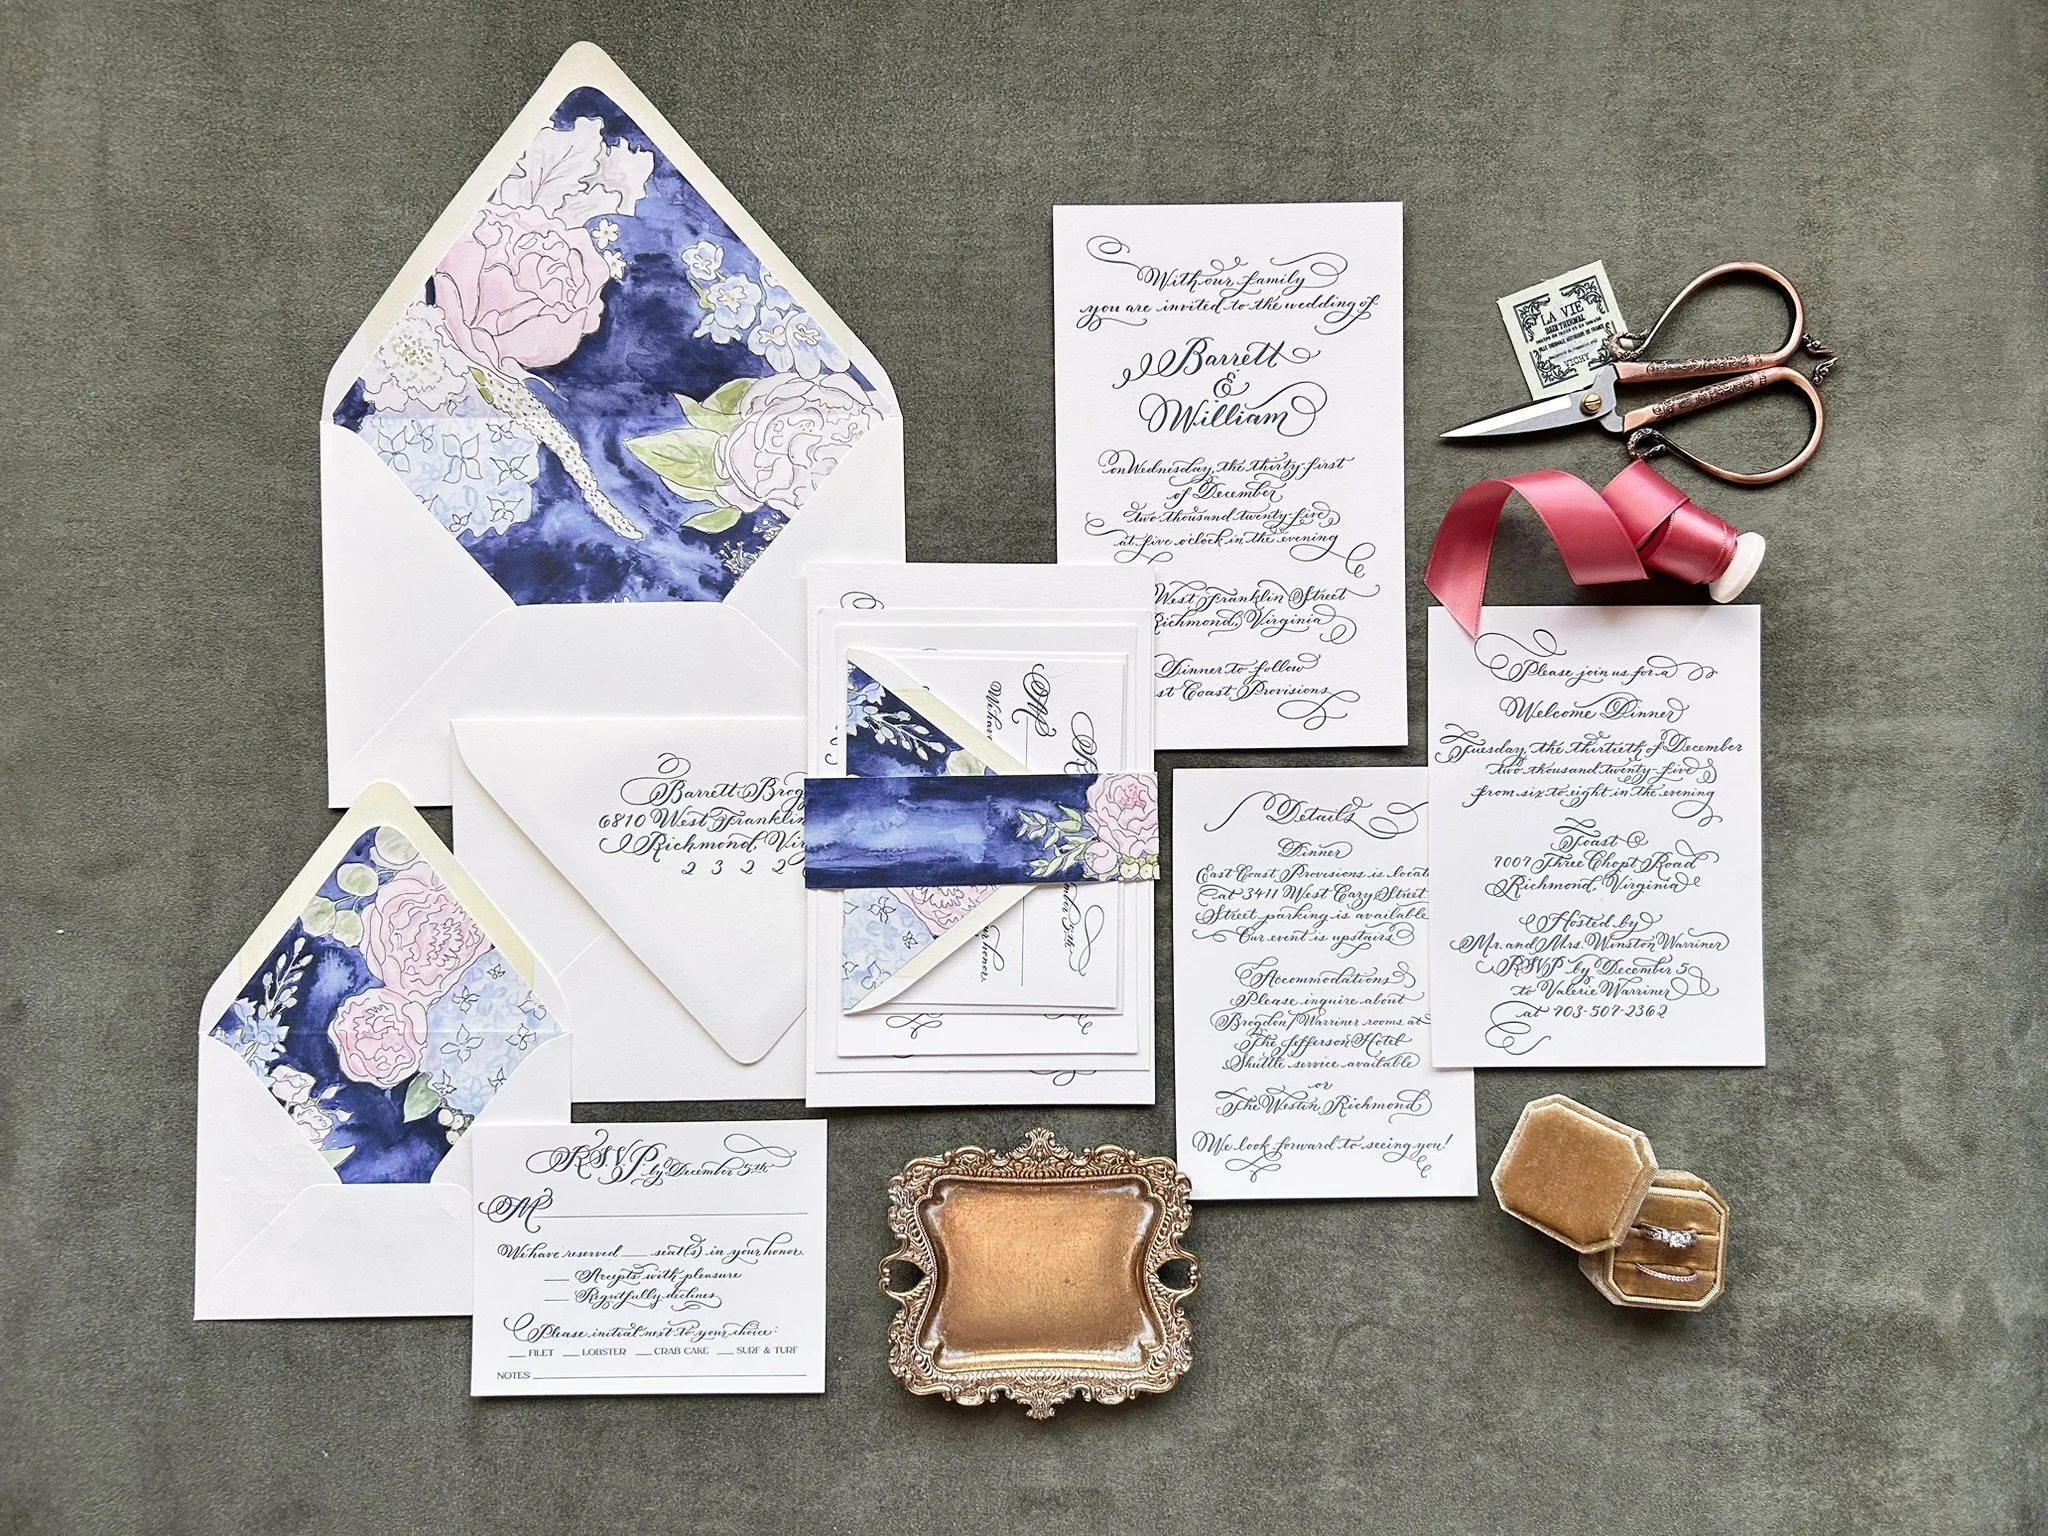 With our family
you are invited to the wedding of
Barrett
&
William
on Wednesday, the thirty-first
of December
two thousand twenty-five
at five o'clock in the evening
West Franklin Street
Richmond, Virginia
Dinner to follow
st Coast Provisions
LA VIE
VICHY
Please join us for a
Welcome Dinner
Tuesday, the thirtieth of December
two thousand twenty-five
from six to eight in the evening
Toast
7007 Three Chopt Road
Richmond, Virginia
Hosted by
Mr. and Mrs. Winston Warriner
RSVP by December 5
to Valerie Warriner
at 703-507-2362
Details
Dinner
East Coast Provisions is locate
at 3411 West Cary Street
Street parking is available
Our event is upstairs
Accommodations
Please inquire about
Brogdon/Warriner rooms at
The Jefferson Hotel
Shuttle service available
or
The Westin, Richmond
We look forward to seeing you!
Barrett Brog
6810 West Franklin
Richmond, Vir
2 3 2 2
M
We hav
ur honor.
mber 5th
RSVP by December 5th
M
We have reserved ___ seat(s) in your honor.
___ Accepts with pleasure
___ Regretfully declines
Please initial next to your choice:
___ FILET ___ LOBSTER ___ CRAB CAKE ___ SURF & TURF
NOTES: